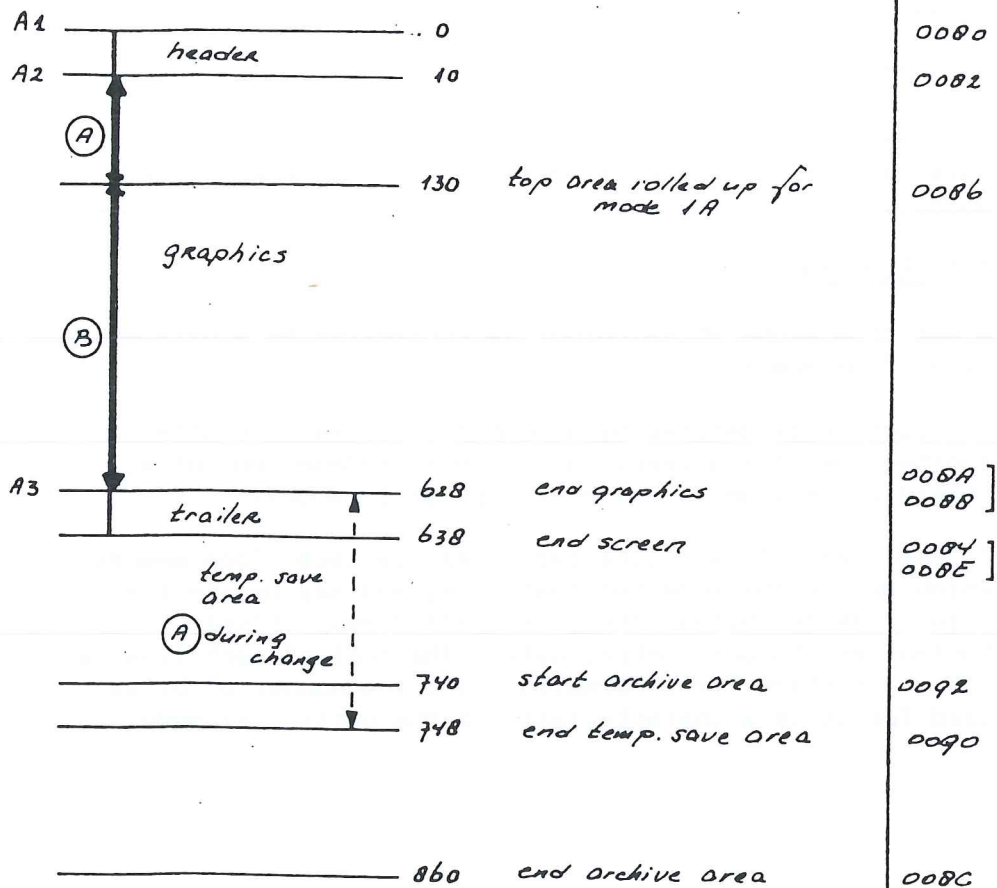 A1 .. 0 0080
header
A2 10 0082
A
130 top area rolled up for 0086
mode 1A
graphics
B
A3 628 end graphics 008A ]
0088
trailer
638 end screen 0084 ]
008E
temp. save
area
A during
change
740 start archive area 0092
748 end temp. save area 0090
860 end archive area 008C